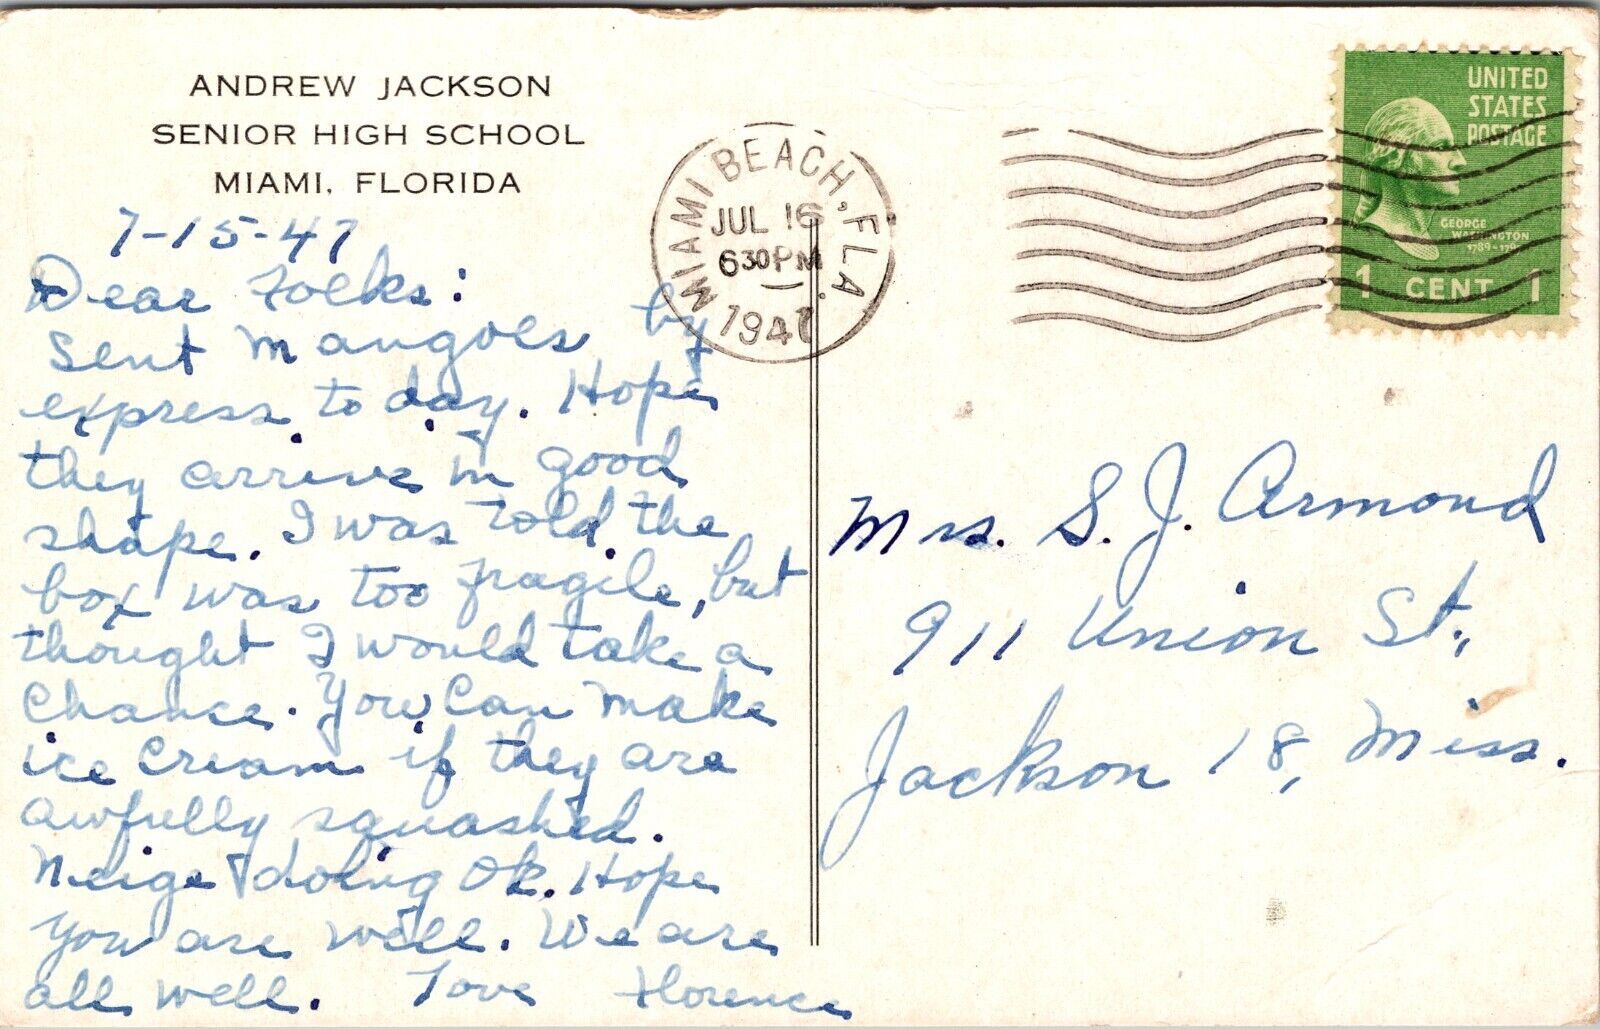 ANDREW JACKSON
SENIOR HIGH SCHOOL
MIAMI, FLORIDA
7-15-47
Dear Folks:
Sent Mangoes by
express today. Hope
they arrive in good
shape. I was told the
box was too fragile, but
thought I would take a
chance. You can make
ice cream if they are
awfully squashed.
doing Ok. Hope
you are well. We are
all well. Love Florence
MIAMI BEACH, FLA.
JUL 16
630PM
1947
UNITED
STATES
POSTAGE
GEORGE
WASHINGTON
1 CENT 1
Mrs. S. J. Armond
911 Union St.,
Jackson 18, Miss.